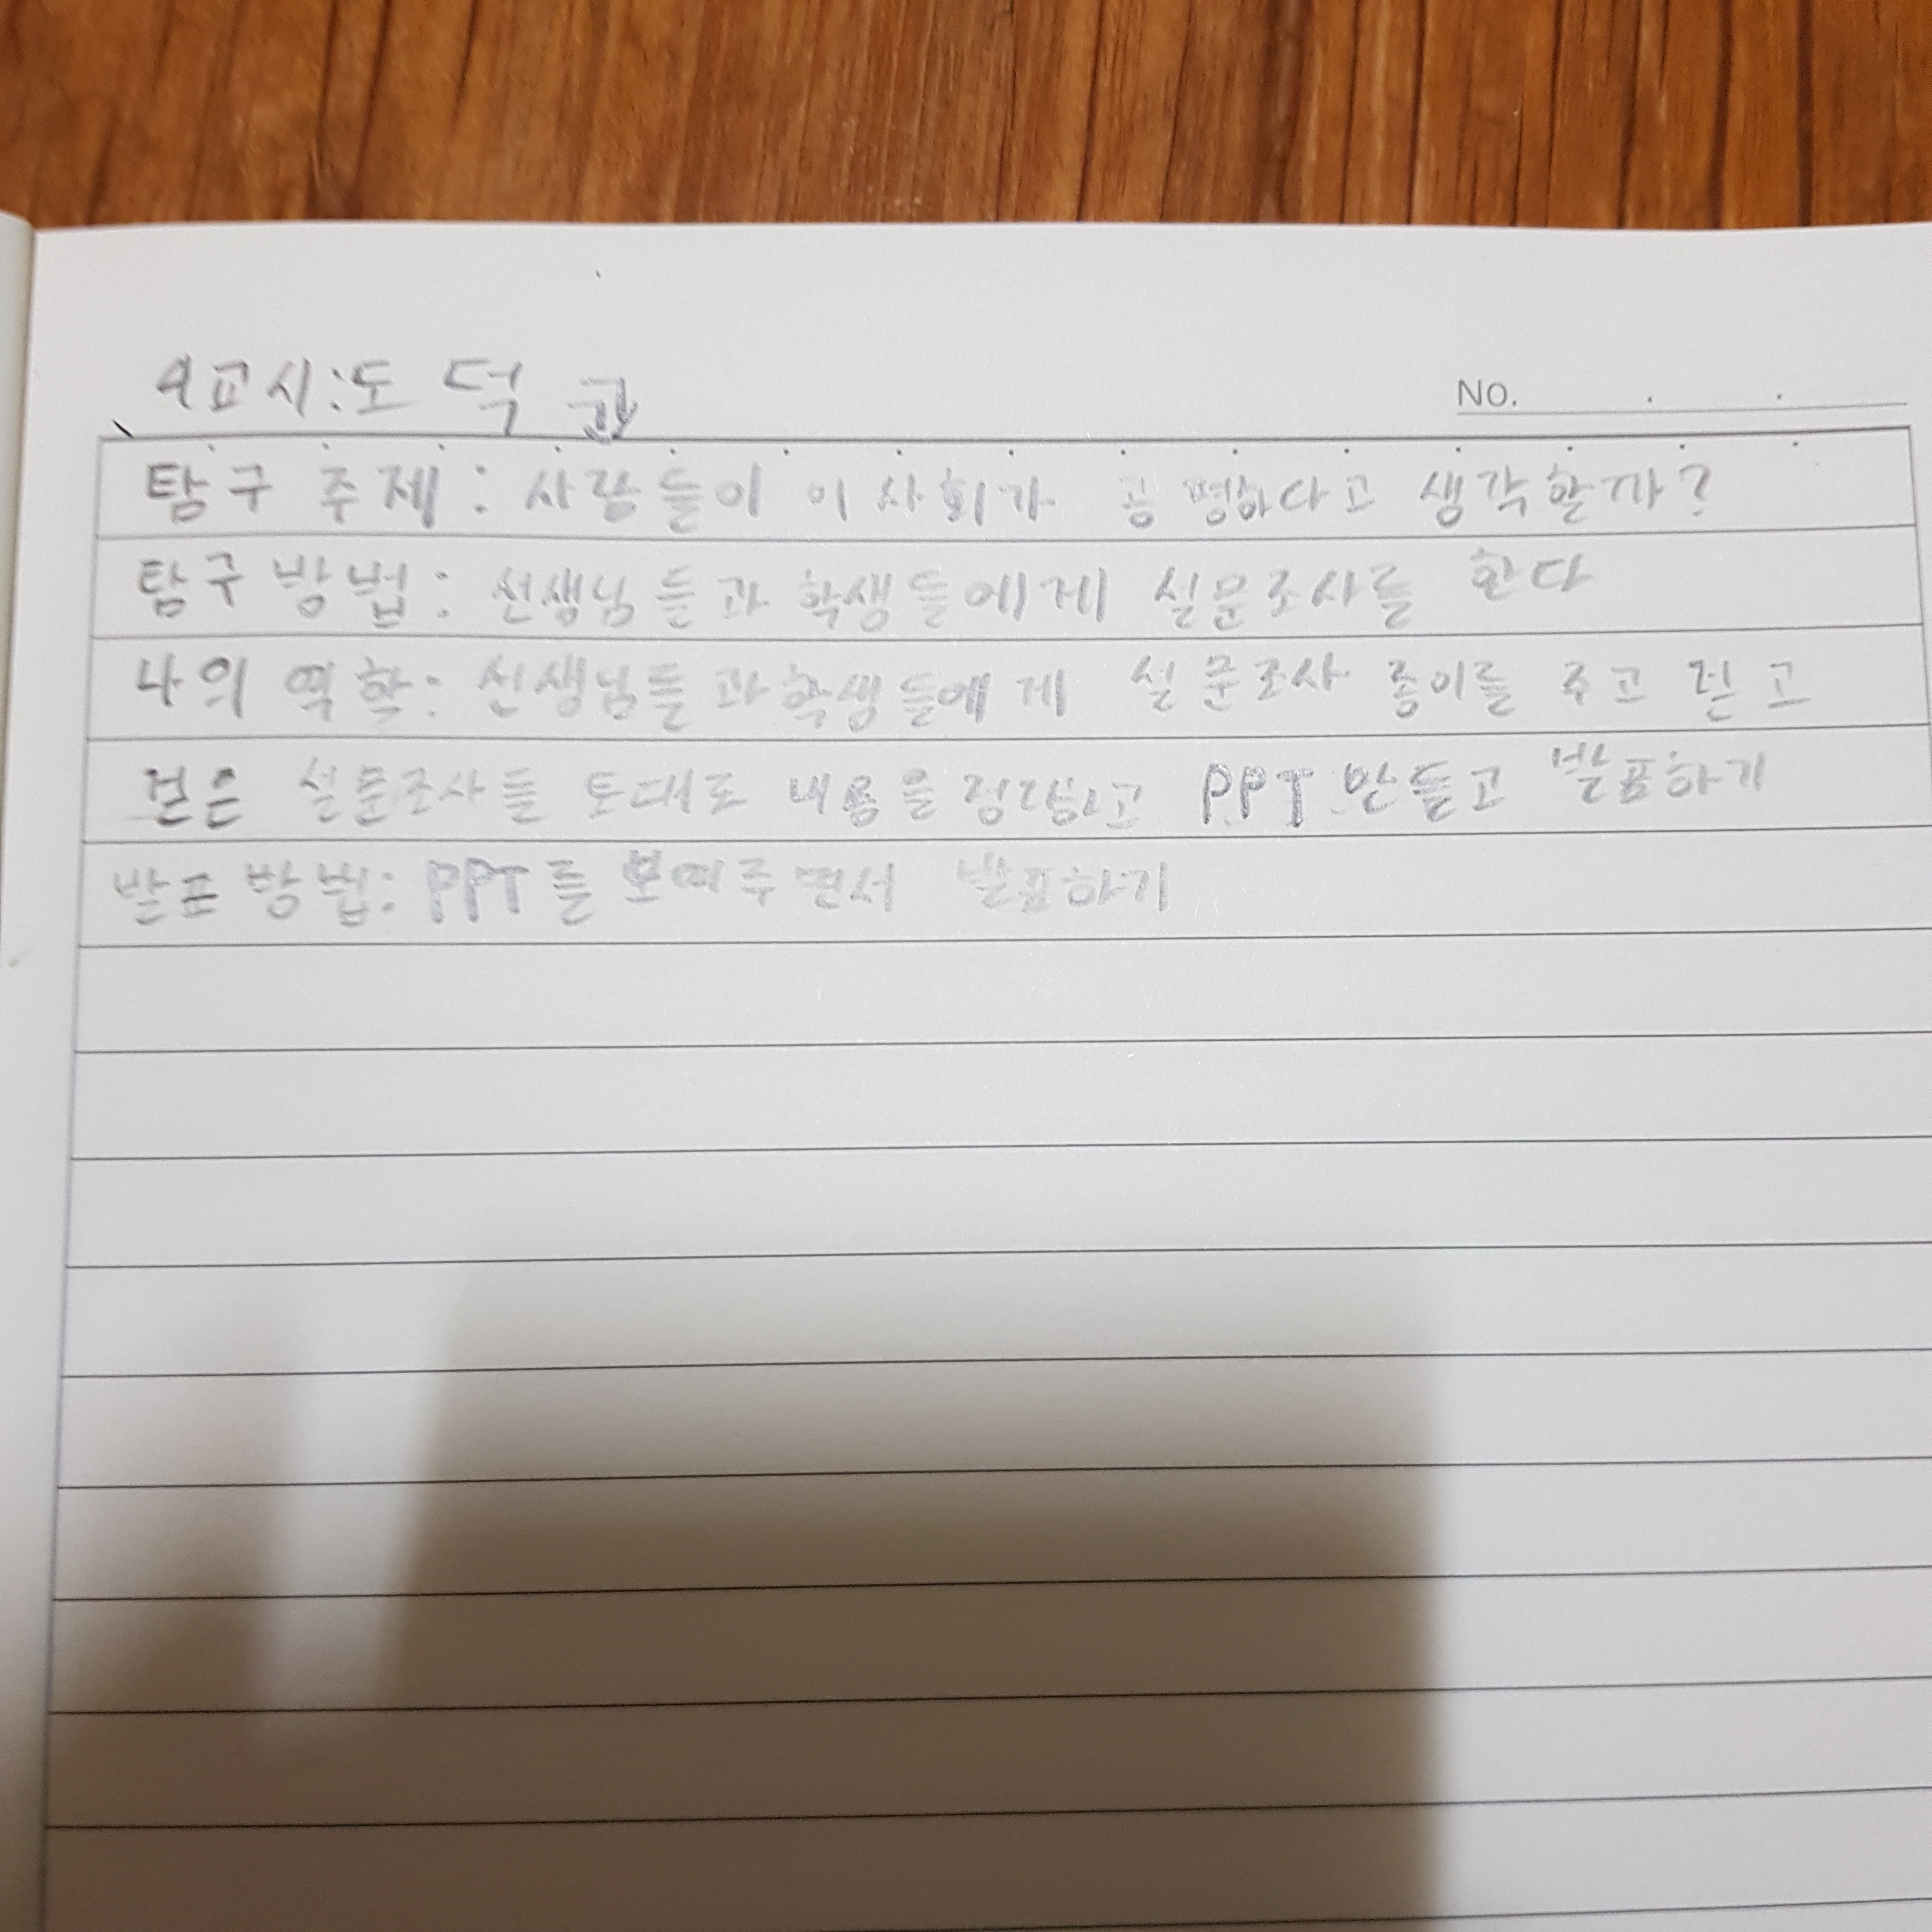 4교시:도덕
NO.
탐구 주제: 사람들이 이 사회가 공평하다고 생각할까?
탐구 방법: 선생님들과 학생들에게 설문조사를 한다
나의 역할: 선생님들과 학생들에게 설문조사 종이를 주고 걷고
걷은 설문조사를 토대로 내용을 정리하고 PPT 만들고 발표하기
발표 방법: PPT를 보여주면서 발표하기